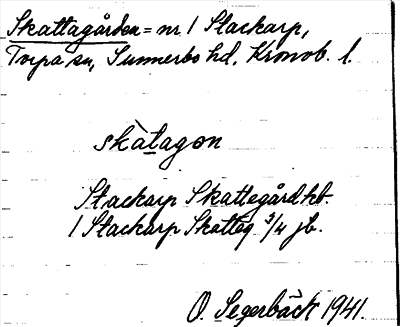 Skattagården = nr 1 Stackarp,
Torpa sn, Sunnerbo hd, Kronob. l.
skàtagon
Stackarp Skattegård hb.
1 Stackarp Skatteg 3/4 jb.
O. Segerbäck 1941.